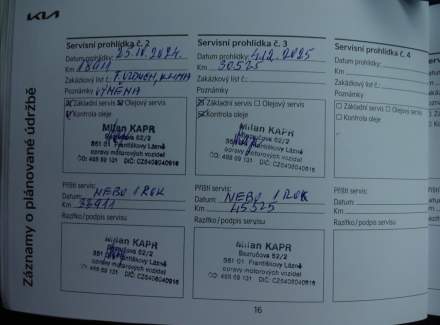 KIA
Záznamy o plánované údržbě
Servisní prohlídka č. 2
Datum prohlídky: 25.10.2024.
Km 18911
Zakázkový list č.: F. VZDUCH, KLIMA
Poznámky VÝMĚNA
Základní servis Olejový servis
Kontrola oleje
Milan KAPR
Bezručova 52/2
351 01 Františkovy Lázně
opravy motorových vozidel
Příští servis:
Datum NEBO 1 ROK
Km 33911
Razítko/podpis servisu
Milan KAPR
Bezručova 52/2
351 01 Františkovy Lázně
opravy motorových vozidel
Servisní prohlídka č. 3
Datum prohlídky: 4.12.2025
Km 30525
Zakázkový list č.:
Poznámky
Základní servis Olejový servis
Kontrola oleje
Milan KAPR
Bezručova 52/2
351 01 Františkovy Lázně
opravy motorových vozidel
Příští servis:
Datum NEBO 1 ROK
Km 45525
Razítko/podpis servisu
Milan KAPR
Bezručova 52/2
351 01 Františkovy Lázně
opravy motorových vozidel
Servisní prohlídka č. 4
Datum prohlídky:
Km
Zakázkový list č.:
Poznámky
Základní servis Olejový servis
Kontrola oleje
Příští servis:
Datum
Km
Razítko/podpis servisu
16